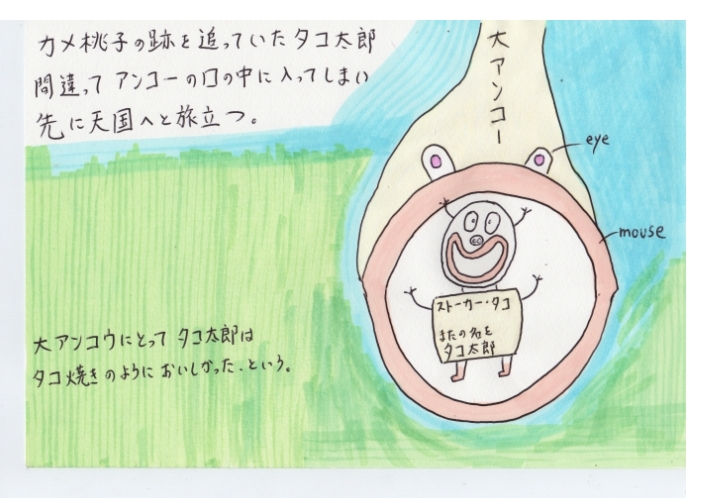 カメ桃子の跡を追っていたタコ太郎
間違って アンコーの口の中に入ってしまい
先に天国へと旅立つ。
大アンコー
eye
mouse
ストーカー・タコ
またの名を
タコ太郎
大アンコウにとって タコ太郎は
タコ焼きのようにおいしかった.という。